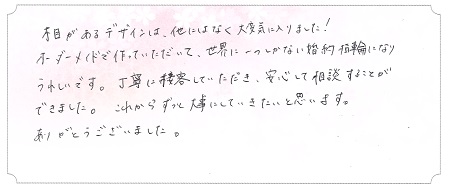 木目があるデザインは、他にはなく大変気に入りました!
オーダーメイドで作っていただいて、世界に一つしかない婚約指輪になり
うれしいです。丁寧に接客していただき、安心して相談することが
できました。これからずっと大事にしていきたいと思います。
ありがとうございました。